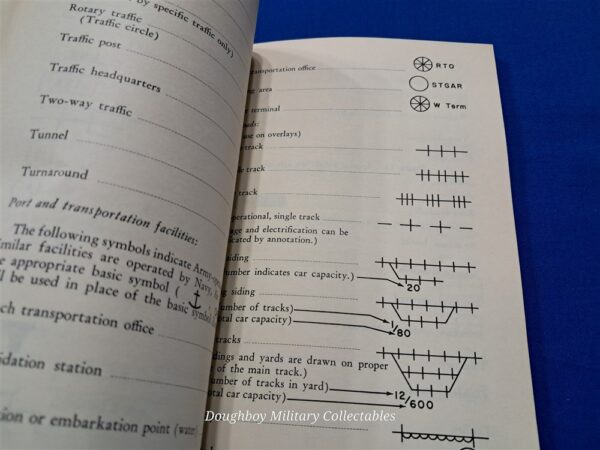 by specific traffic only)
Rotary traffic
(Traffic circle)
Traffic post
Traffic headquarters
Two-way traffic
Tunnel
Turnaround
Port and transportation facilities:
The following symbols indicate Army-
similar facilities are operated by Navy,
appropriate basic symbol (
be used in place of the basic symbol
transportation office
station
or embarkation point (water)
transportation office
RTO
area
STGAR
terminal
W Term
use on overlays)
track
track
track
operational, single track
and electrification can be
by annotation.)
siding
number indicates car capacity.)
20
siding
number of tracks)
total car capacity)
1/80
tracks
and yards are drawn on proper
of the main track.)
number of tracks in yard)
total car capacity)
12/600
Doughboy Military Collectables